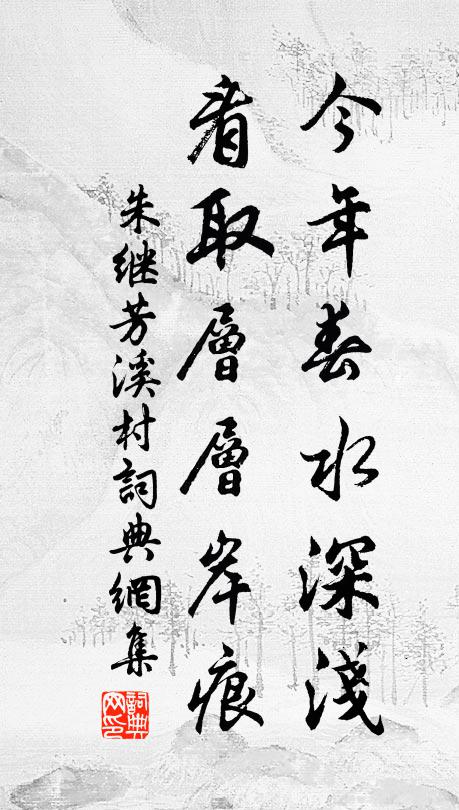 今年春水深淺
看取層層岸痕
朱继芳溪村詞典網集
詞典网印